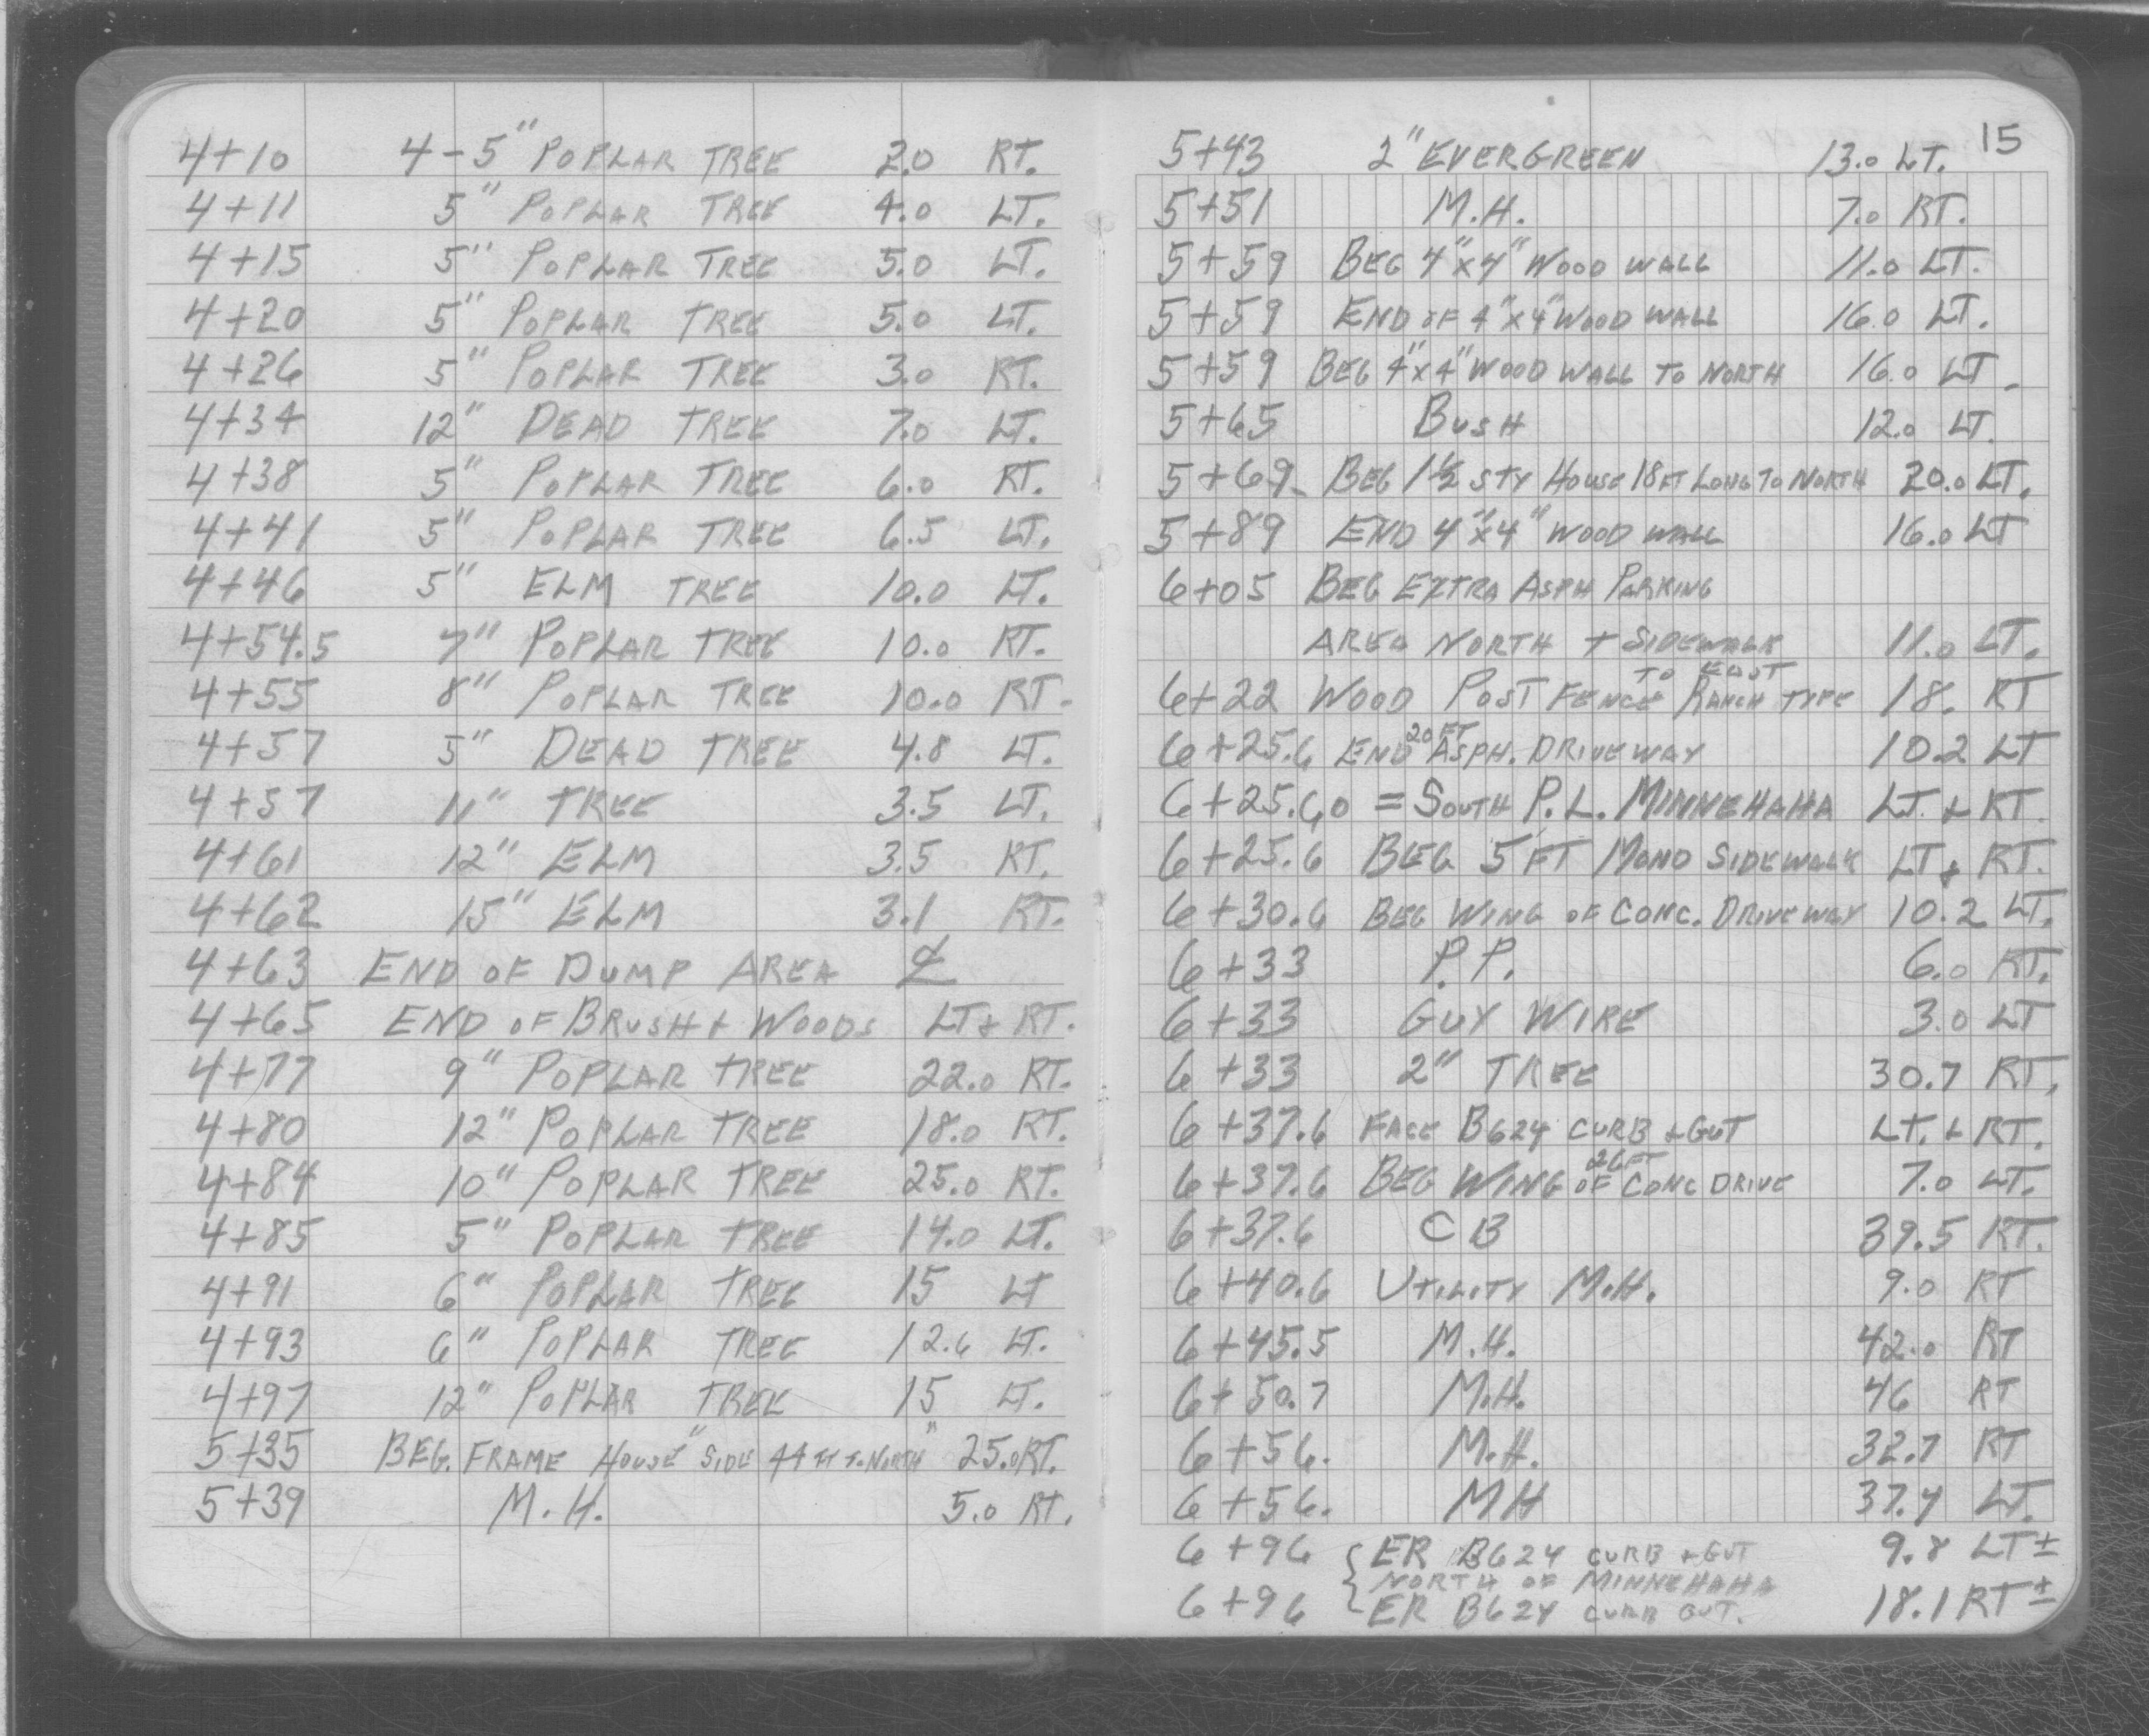 4+10 4-5" POPLAR TREE 2.0 RT.
4+11 5" POPLAR TREE 4.0 LT.
4+15 5" POPLAR TREE 5.0 LT.
4+20 5" POPLAR TREE 5.0 LT.
4+26 5" POPLAR TREE 3.0 RT.
4+34 12" DEAD TREE 7.0 LT.
4+38 5" POPLAR TREE 6.0 RT.
4+41 5" POPLAR TREE 6.5 LT.
4+46 5" ELM TREE 10.0 LT.
4+54.5 7" POPLAR TREE 10.0 RT.
4+55 8" POPLAR TREE 10.0 RT.
4+57 5" DEAD TREE 4.8 LT.
4+57 11" TREE 3.5 LT.
4+61 12" ELM 3.5 RT.
4+62 15" ELM 3.1 RT.
4+63 END OF DUMP AREA ℄
4+65 END OF BRUSH + WOODS LT + RT.
4+77 9" POPLAR TREE 22.0 RT.
4+80 12" POPLAR TREE 18.0 RT.
4+84 10" POPLAR TREE 25.0 RT.
4+85 5" POPLAR TREE 14.0 LT.
4+91 6" POPLAR TREE 15 LT
4+93 6" POPLAR TREE 12.6 LT.
4+97 12" POPLAR TREE 15 LT.
5+35 BEG. FRAME HOUSE "SIDE 44 FT TO NORTH" 25.0 RT.
5+39 M.H. 5.0 RT.
15
5+43 2" EVERGREEN 13.0 LT.
5+51 M.H. 7.0 RT.
5+59 BEG 4"x4" WOOD WALL 11.0 LT.
5+59 END OF 4"x4" WOOD WALL 16.0 LT.
5+59 BEG 4"x4" WOOD WALL TO NORTH 16.0 LT.
5+65 BUSH 12.0 LT.
5+69 BEG 1½ STY HOUSE 18 FT LONG TO NORTH 20.0 LT.
5+89 END 4"x4" WOOD WALL 16.0 LT
6+05 BEG EXTRA ASPH PARKING
AREA NORTH + SIDEWALK 11.0 LT.
TO EAST
6+22 WOOD POST FENCE RANCH TYPE 18. RT
6+25.6 END 20 FT ASPH. DRIVEWAY 10.2 LT
6+25.60 = SOUTH P.L. MINNEHAHA LT. + RT.
6+25.6 BEG. 5 FT MONO SIDEWALK LT + RT.
6+30.6 BEG WING OF CONC. DRIVEWAY 10.2 LT.
6+33 P.P. 6.0 RT.
6+33 GUY WIRE 3.0 LT
6+33 2" TREE 30.7 RT.
6+37.6 FACE B624 CURB + GUT LT. + RT.
6+37.6 BEG WING OF 26 FT CONC DRIVE 7.0 LT.
6+37.6 CB 39.5 RT.
6+40.6 UTILITY M.H. 9.0 RT
6+45.5 M.H. 42.0 RT
6+50.7 M.H. 46 RT
6+56. M.H. 32.7 RT
6+56. MH 37.4 LT.
6+96 { ER B624 CURB + GUT 9.8 LT±
NORTH OF MINNEHAHA
6+96 ER B624 CURB GUT. 18.1 RT±